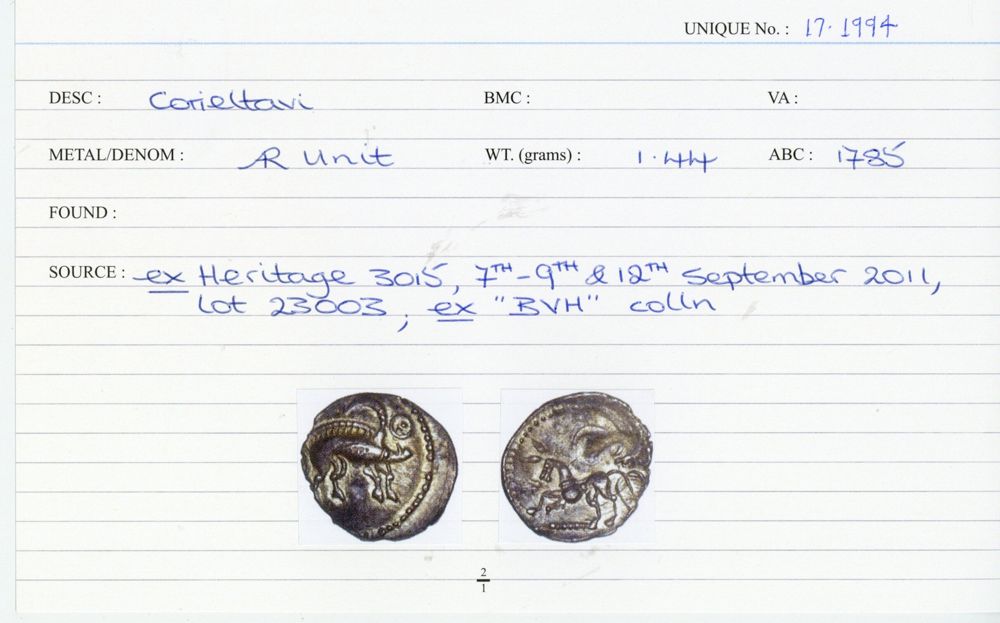 UNIQUE No. : 17.1994
DESC : Corieltavi BMC : VA :
METAL/DENOM : AR Unit WT. (grams) : 1.44 ABC : 1785
FOUND :
SOURCE : ex Heritage 3015, 7TH-9TH & 12TH September 2011,
Lot 23003, ex "BVH" colln
2
1